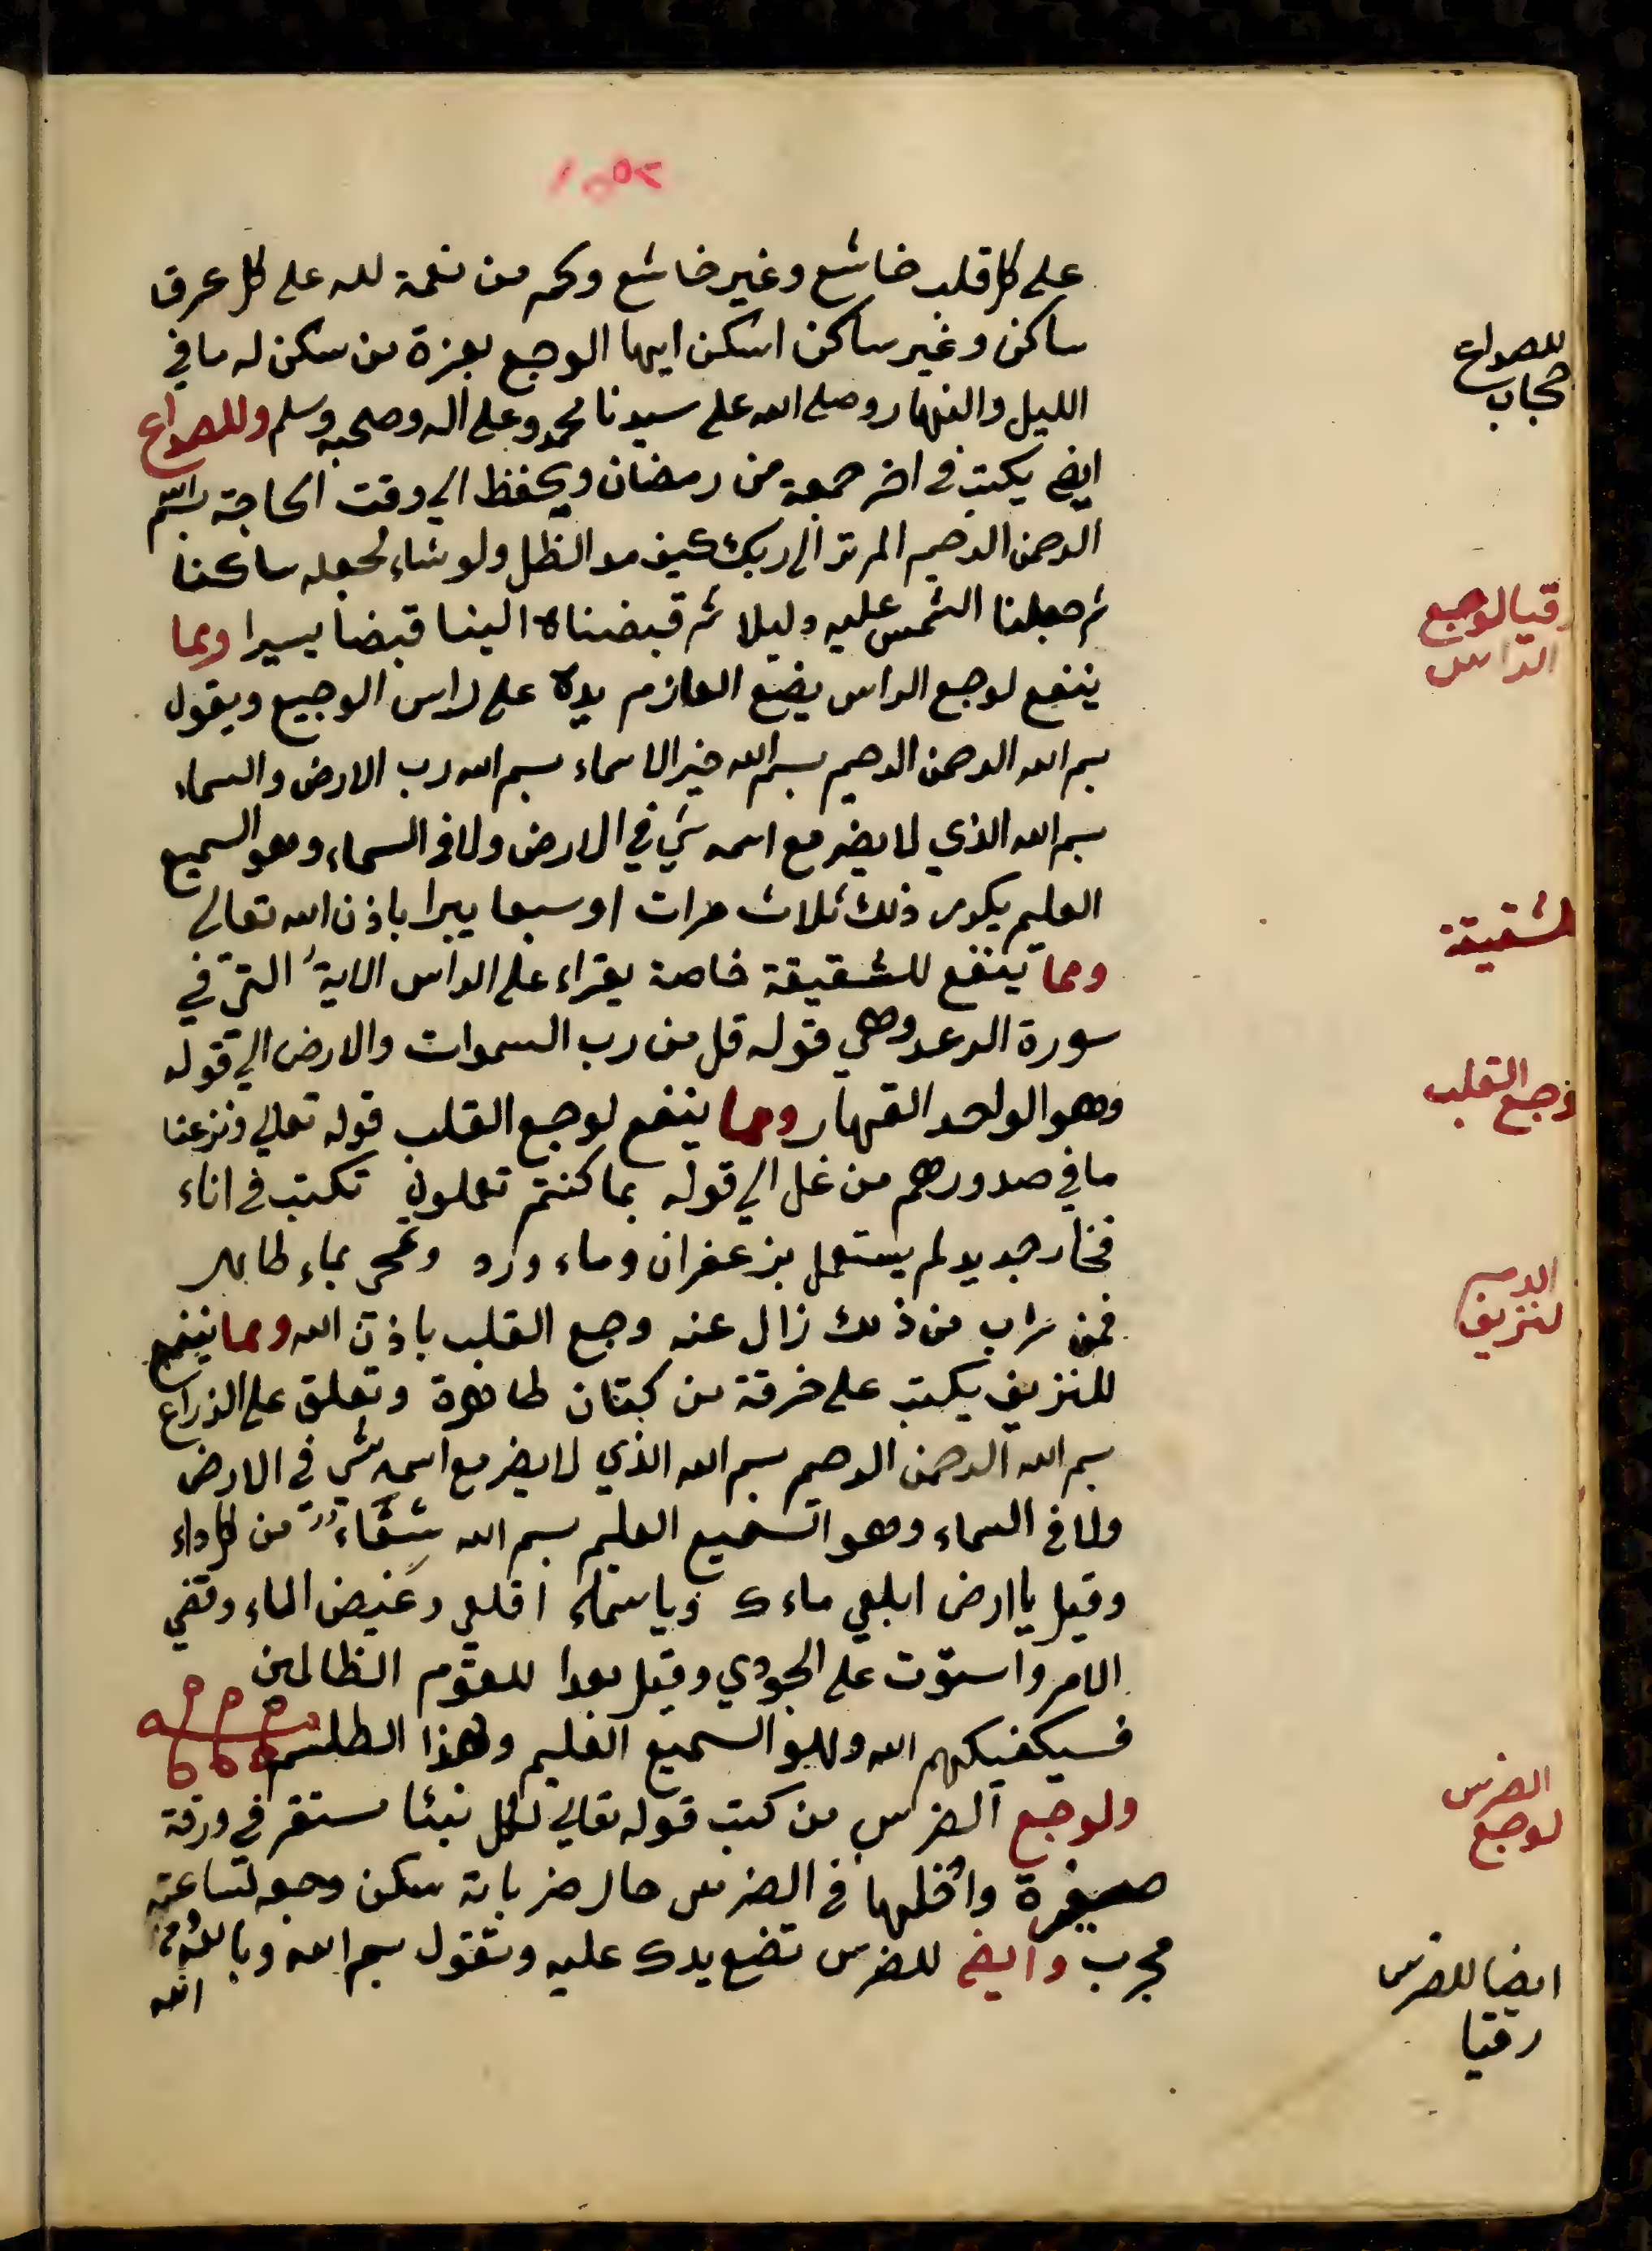 على كل قلب خاشع وغير خاشع وكم من نعمة لله على كل عرق
ساكن وغير ساكن اسكن ايها الوجع بعزة من سكن له ما في
الليل والنهار وصلى الله على سيدنا محمد وعلى اله وصحبه وسلم وللصداع
ايض يكتب في اخر جمعة من رمضان ويحفظ الي وقت الحاجة بسم الله
الرحمن الرحيم الم تر الى ربك كيف مد الظل ولو شاء لجعله ساكنا
ثم جعلنا الشمس عليه دليلا ثم قبضناه الينا قبضا يسيرا ومما
ينفع لوجع الراس يضع العازم يده على راس الوجيع ويقول
بسم الله الرحمن الرحيم بسم الله خير الاسماء بسم الله رب الارض والسماء
بسم الله الذي لا يضر مع اسمه شي في الارض ولا في السماء وهو السميع
العليم يكرر ذلك ثلاث مرات او سبعا يبرا باذن الله تعالى
ومما ينفع للشقيقة خاصة يقراء على الراس الاية التي في
سورة الرعد وهي قوله قل من رب السموات والارض الي قوله
وهو الواحد القهار ومما ينفع لوجع القلب قوله تعالي ونزعنا
ما في صدورهم من غل الي قوله بما كنتم تعملون تكتب في اناء
فخار جديد لم يستعمل بزعفران وماء ورد وتمحى بماء طاهر
فمن شرب من ذلك زال عنه وجع القلب باذن الله ومما ينفع
للنزيف يكتب على خرقة من كتان طاهرة وتعلق على الذراع
بسم الله الرحمن الرحيم بسم الله الذي لا يضر مع اسمه شي في الارض
ولا في السماء وهو السميع العليم بسم الله شفاء من كل داء
وقيل يا ارض ابلعي ماءك ويا سماء اقلعي وغيض الماء وقضي
الامر واستوت على الجودي وقيل بعدا للقوم الظالمين
فسيكفيكهم الله وهو السميع العليم وهذا الطلسم
ولوجع الضرس من كتب قوله تعالي لكل نبئا مستقر في ورقة
صغيرة وادخلها في الضرس حال ضربانه سكن وجعه لساعته
مجرب وايض للضرس تضع يدك عليه وتقول بسم الله وبالله
الله
للصداع
حجاب
رقيا لوجع
الراس
لشقيقة
وجع القلب
الدم
لنزيف
الضرس
لوجع
ايضا للضرس
رقيا